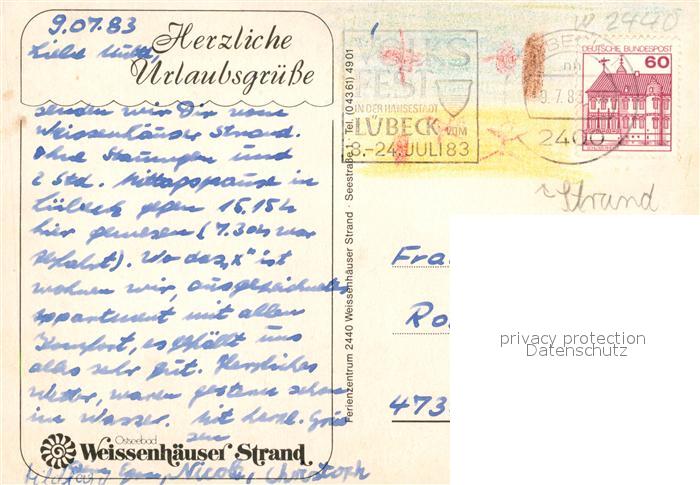 9.07.83
Liebe Mutti,
Herzliche
Urlaubsgrüße
senden wir Dir vom
Weissenhäuser Strand.
Ohne Stauungen und
2 Std. Mittagspause in
Lübeck gegen 15.15 h
hier gewesen (7.30 h war
Abfahrt). Wo das „x“ ist
wohnen wir, ausgezeichnetes
Appartment mit allem
Komfort, es gefällt uns
alles sehr gut. Herrliches
Wetter, waren gestern schon
im Wasser. Mit herzl. Grü-
ssen
Ostseebad
Weissenhäuser Strand
Nicole, Christoph
Ferienzentrum 2440 Weissenhäuser Strand · Seestraße 1 · Tel. (04361) 4901
VOLKS
FEST
IN DER HANSESTADT
LÜBECK VOM
8.-24. JULI 83
9.7.83
2400
2440
DEUTSCHE BUNDESPOST
60
Strand
Fra
Ro
473
privacy protection
Datenschutz